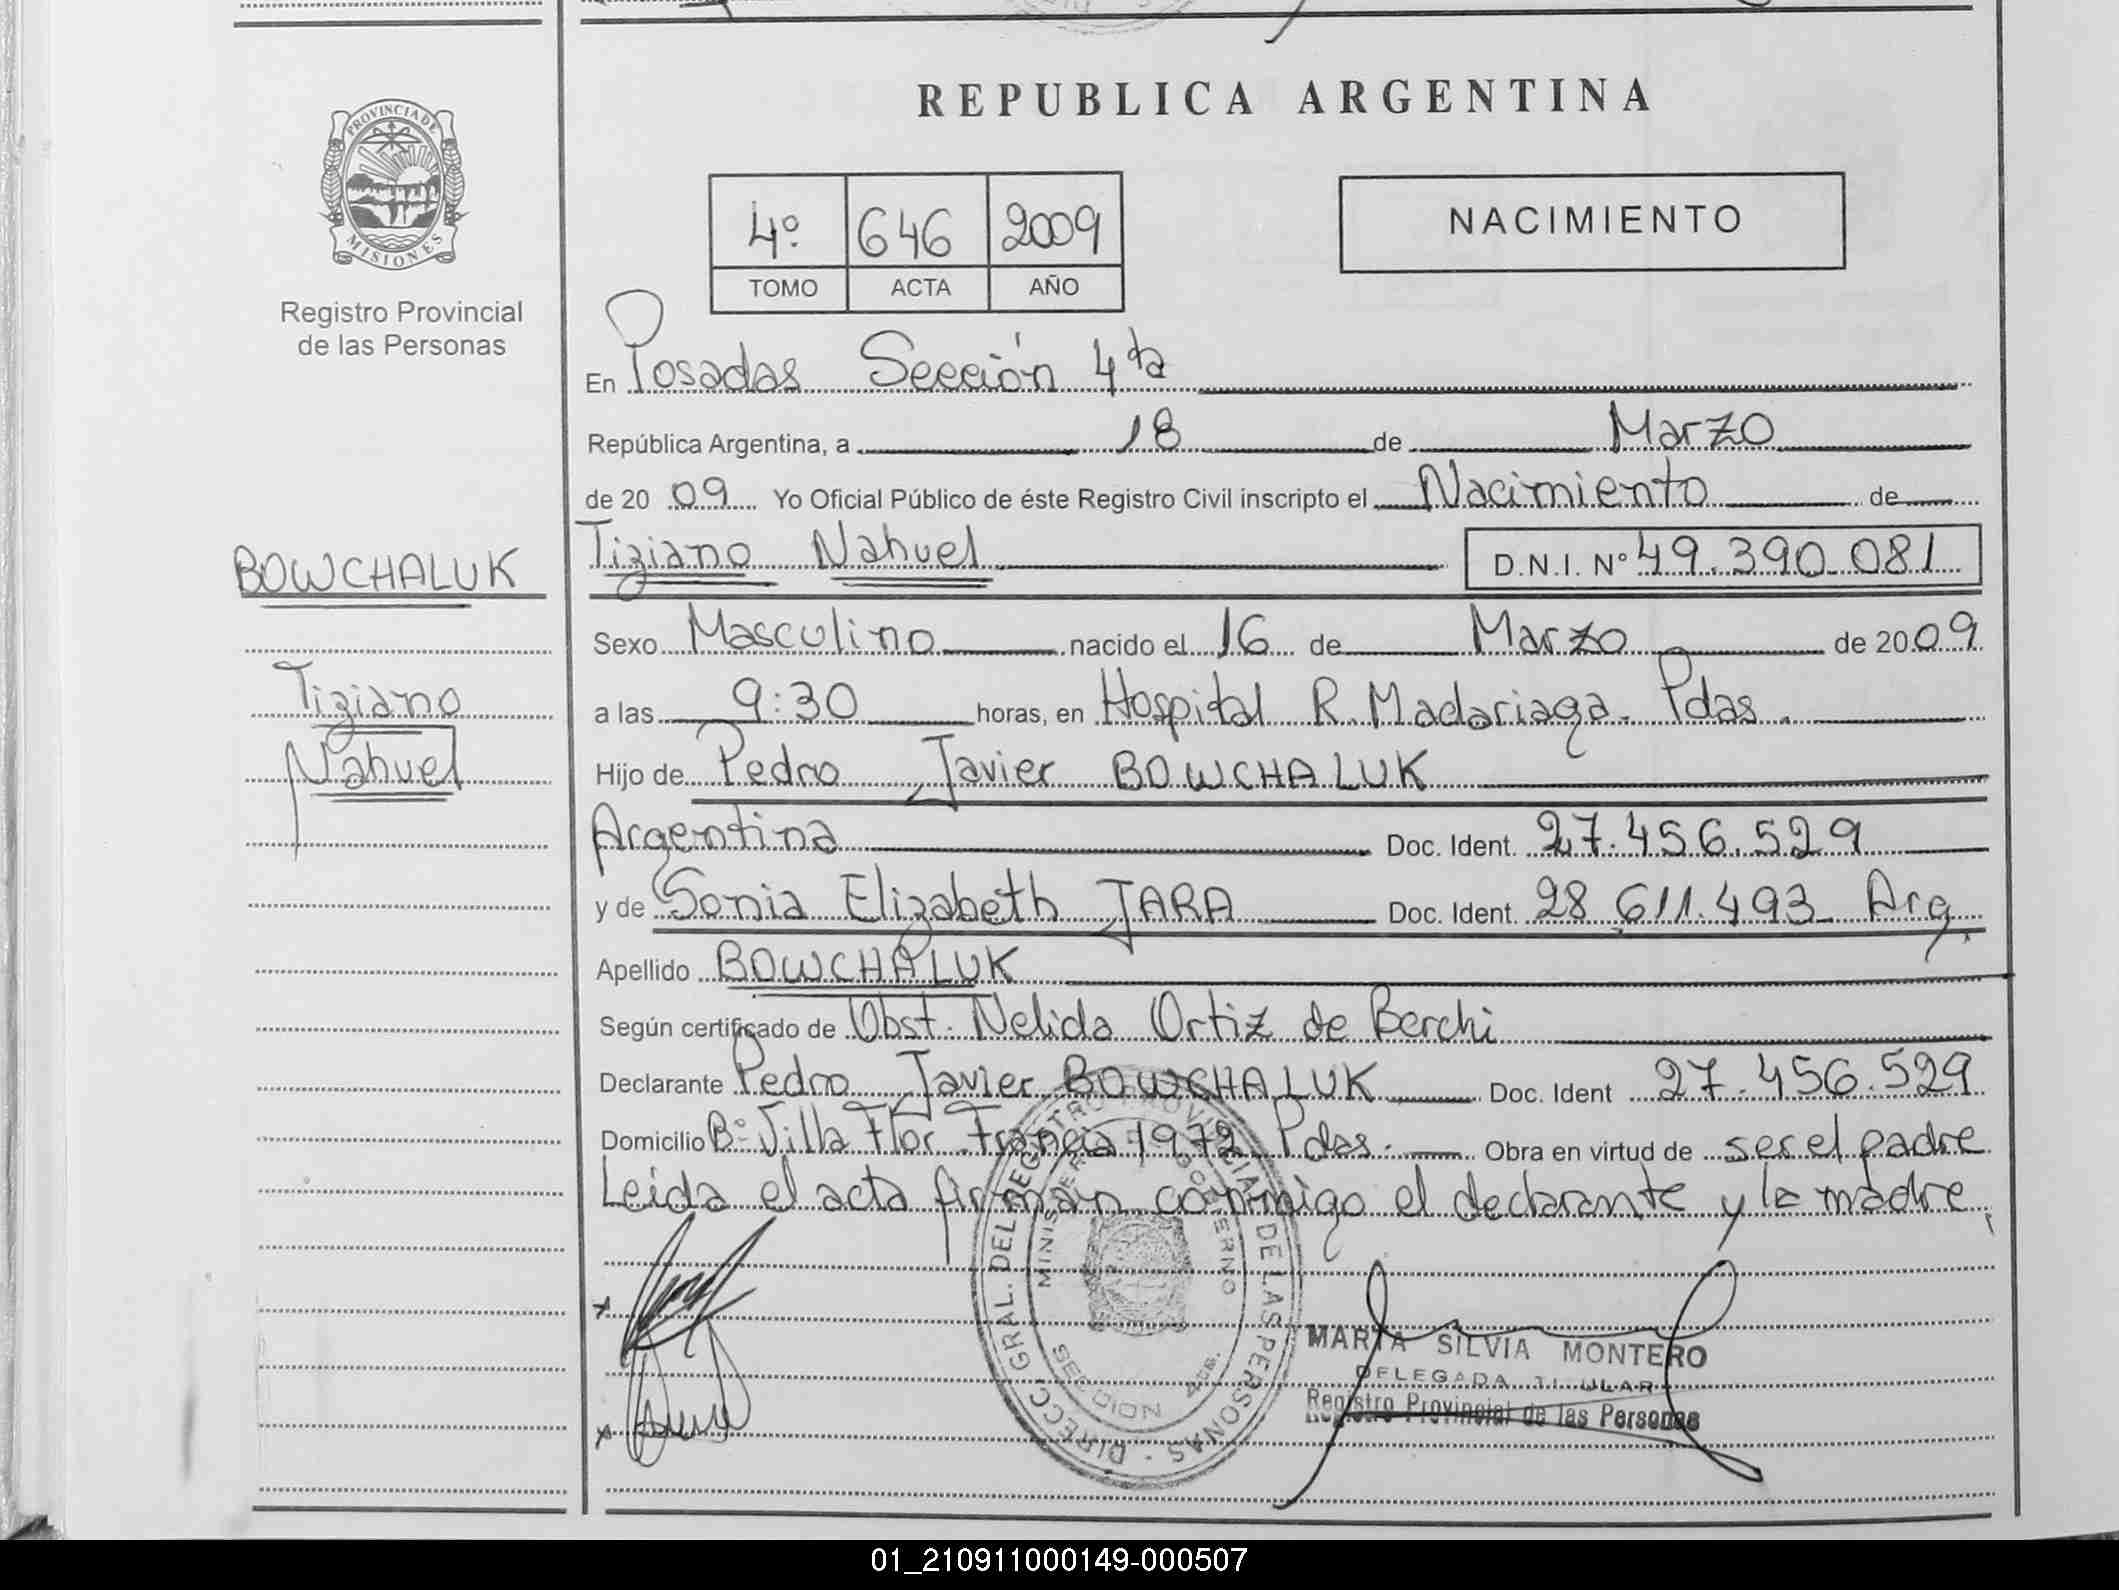 REPUBLICA ARGENTINA
PROVINCIA DE
MISIONES
Registro Provincial
de las Personas
4º 646 2009
TOMO ACTA AÑO
NACIMIENTO
En Posadas Sección 4ta
República Argentina, a 18 de Marzo
de 2009 Yo Oficial Público de éste Registro Civil inscripto el Nacimiento de
BOWCHALUK
Tiziano Nahuel D.N.I. Nº 49.390.081
Sexo Masculino nacido el 16 de Marzo de 2009
Tiziano
a las 9:30 horas, en Hospital R. Madariaga. Pdas.
Nahuel
Hijo de Pedro Javier BOWCHALUK
Argentina Doc. Ident. 27.456.529
y de Sonia Elizabeth JARA Doc. Ident. 28.611.493 Arg.
Apellido BOWCHALUK
Según certificado de Obst. Nelida Ortiz de Berchi
Declarante Pedro Javier BOWCHALUK Doc. Ident 27.456.529
Domicilio Bº Villa Flor Francia 1972 Pdas. Obra en virtud de ser el padre
Leida el acta firman conmigo el declarante y la madre.
DIRECC. GRAL. DEL REGISTRO PROVINCIAL DE LAS PERSONAS
MINISTERIO DE GOBIERNO
SECCION 4ta.
MARTA SILVIA MONTERO
DELEGADA TITULAR
Registro Provincial de las Personas
01_210911000149-000507